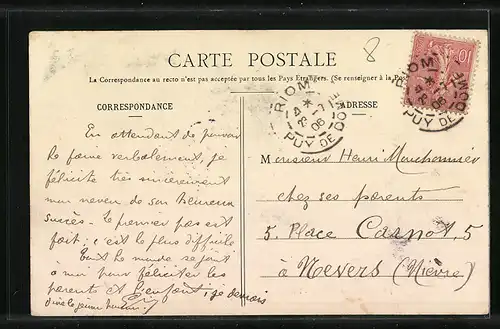 CARTE POSTALE
8
La Correspondance au recto n'est pas acceptée par tous les Pays Etrangers. (Se renseigner à la Poste
CORRESPONDANCE
ADRESSE
10
RIOM
4 * 23 -7 06
PUY DE DOME
RIOM
PUY DE DOME
En attendant de pouvoir
le faire verbalement, je
félicite très sincèrement
mon neveu de son heureux
succès. Le premier pas est
fait; c'est le plus difficile
Tout le monde se joint
à moi pour féliciter les
parents et l'enfant; je
Monsieur Henri
chez ses parents
5, Place Carnot, 5
à Nevers (Nièvre)